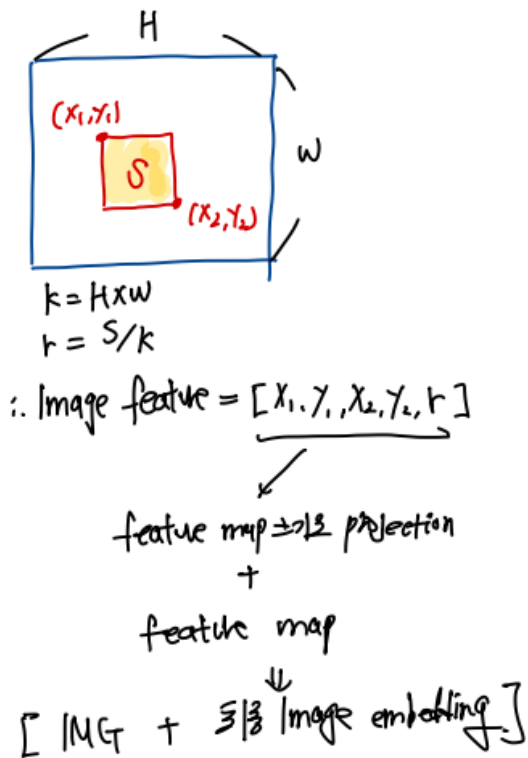 H
(x₁,y₁)
S
W
(x₂,y₂)
k = H×W
r = S/k
∴ Image feature = [x₁, y₁, x₂, y₂, r]
feature map 크기로 projection
+
feature map
⇓
[ IMG + 최종 Image embedding ]